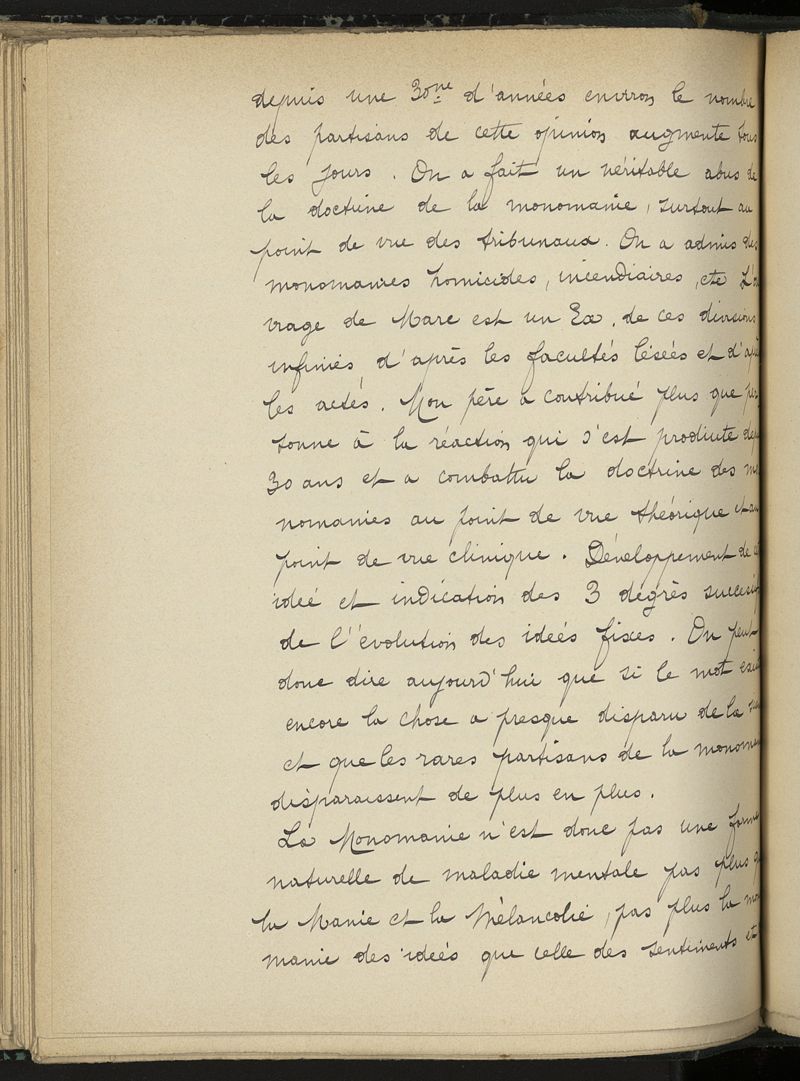 depuis une 30ne d'années environ le nombre
des partisans de cette opinion augmente tous
les jours. On a fait un véritable abus de
la doctrine de la monomanie, surtout au
point de vue des tribunaux. On a admis des
monomanies homicides, incendiaires, etc L'ou
vrage de Marc est un Ex. de ces divisions
infinies d'après les facultés lésées et d'après
les actes. Mon père a contribué plus que per
sonne à la réaction qui s'est produite depuis
30 ans et a combattu la doctrine des mo
nomanies au point de vue théorique et au
point de vue clinique. Développement de cette
idée et indication des 3 degrés successifs
de l'évolution des idées fixes. On peut
donc dire aujourd'hui que si le mot existe
encore la chose a presque disparu de la
et que les rares partisans de la monomanie
disparaissent de plus en plus.
La Monomanie n'est donc pas une forme
naturelle de maladie mentale pas plus que
la Manie et la Mélancolie, pas plus la mono
manie des idées que celle des sentiments et